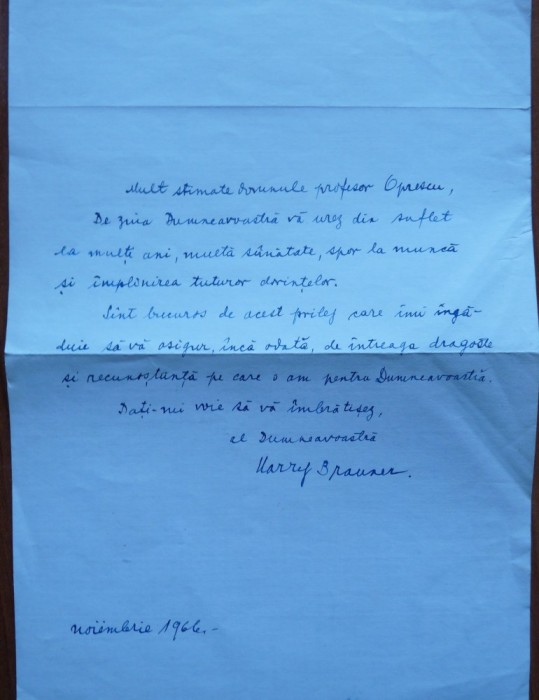 Mult stimate domnule profesor Oprescu,
De ziua Dumneavoastră vă urez din suflet
la mulți ani, multă sănătate, spor la muncă
și împlinirea tuturor dorințelor.
Sînt bucuros de acest prilej care îmi îngă-
duie să vă asigur, încă odată, de întreaga dragoste
și recunoștință pe care o am pentru Dumneavoastră.
Dați-mi voie să vă îmbrățișez,
al Dumneavoastră
Harry Brauner.
noiembrie 1966.-